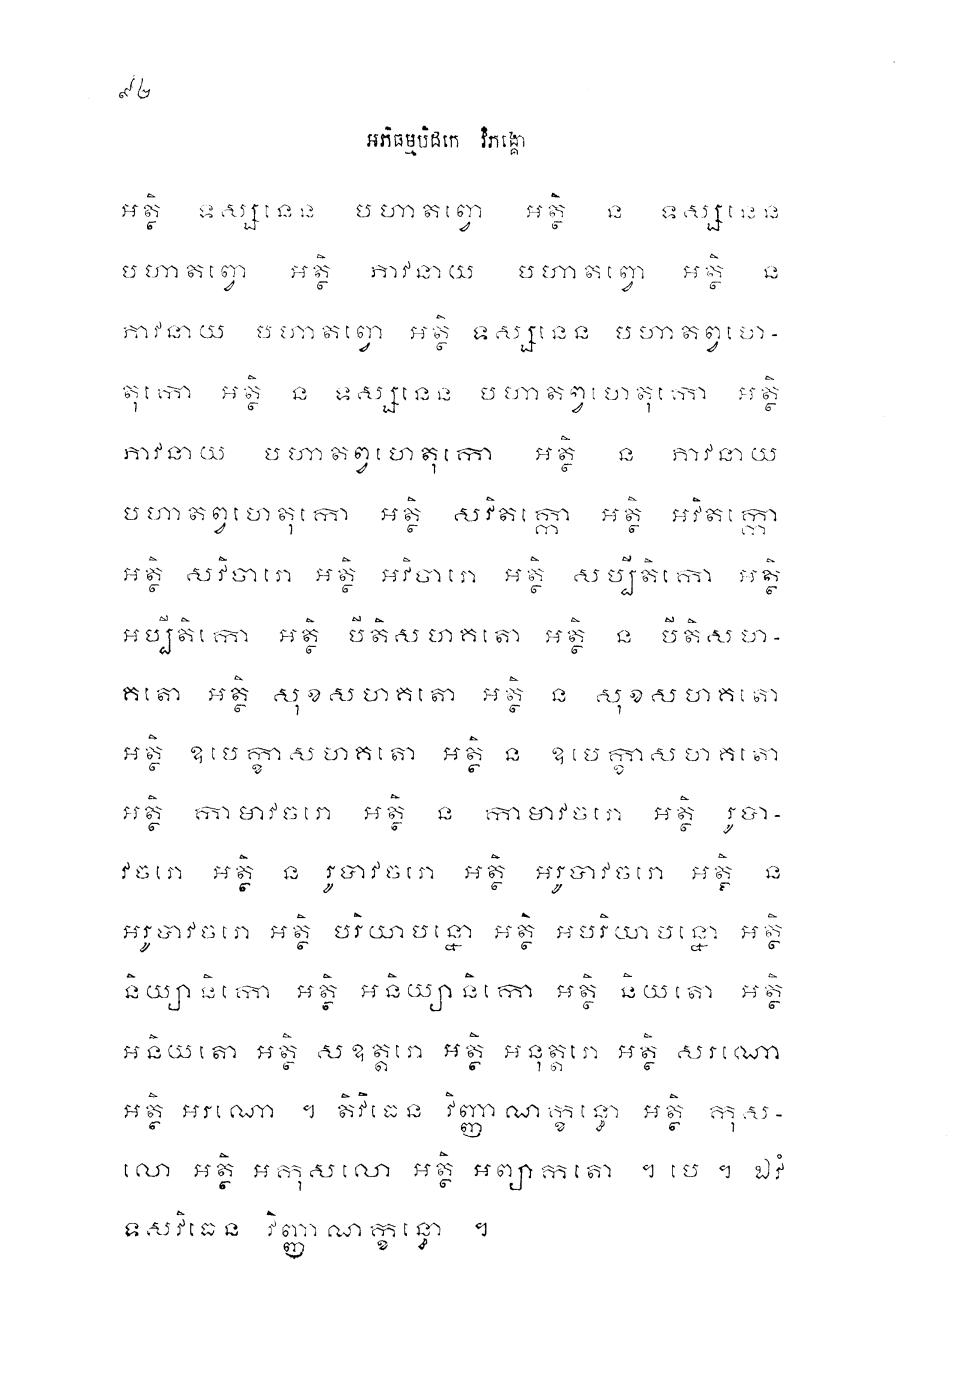 ៩២
អភិធម្មបិដកេ វិភង្គោ
អត្ថិ ទស្សនេន បហាតព្វោ អត្ថិ ន ទស្សនេន
បហាតព្វោ អត្ថិ ភាវនាយ បហាតព្វោ អត្ថិ ន
ភាវនាយ បហាតព្វោ អត្ថិ ទស្សនេន បហាតព្វហេ-
តុកោ អត្ថិ ន ទស្សនេន បហាតព្វហេតុកោ អត្ថិ
ភាវនាយ បហាតព្វហេតុកោ អត្ថិ ន ភាវនាយ
បហាតព្វហេតុកោ អត្ថិ សវិតក្កោ អត្ថិ អវិតក្កោ
អត្ថិ សវិចារោ អត្ថិ អវិចារោ អត្ថិ សប្បីតិកោ អត្ថិ
អប្បីតិកោ អត្ថិ បីតិសហគតោ អត្ថិ ន បីតិសហ-
គតោ អត្ថិ សុខសហគតោ អត្ថិ ន សុខសហគតោ
អត្ថិ ឧបេក្ខាសហគតោ អត្ថិ ន ឧបេក្ខាសហគតោ
អត្ថិ កាមាវចរោ អត្ថិ ន កាមាវចរោ អត្ថិ រូបា-
វចរោ អត្ថិ ន រូបាវចរោ អត្ថិ អរូបាវចរោ អត្ថិ ន
អរូបាវចរោ អត្ថិ បរិយាបន្នោ អត្ថិ អបរិយាបន្នោ អត្ថិ
និយ្យានិកោ អត្ថិ អនិយ្យានិកោ អត្ថិ និយតោ អត្ថិ
អនិយតោ អត្ថិ សឧត្តរោ អត្ថិ អនុត្តរោ អត្ថិ សរណោ
អត្ថិ អរណោ ។ តិវិធេន វិញ្ញាណក្ខន្ធោ អត្ថិ កុស-
លោ អត្ថិ អកុសលោ អត្ថិ អព្យាកតោ ។ បេ ។ ឯវំ
ទសវិធេន វិញ្ញាណក្ខន្ធោ ។